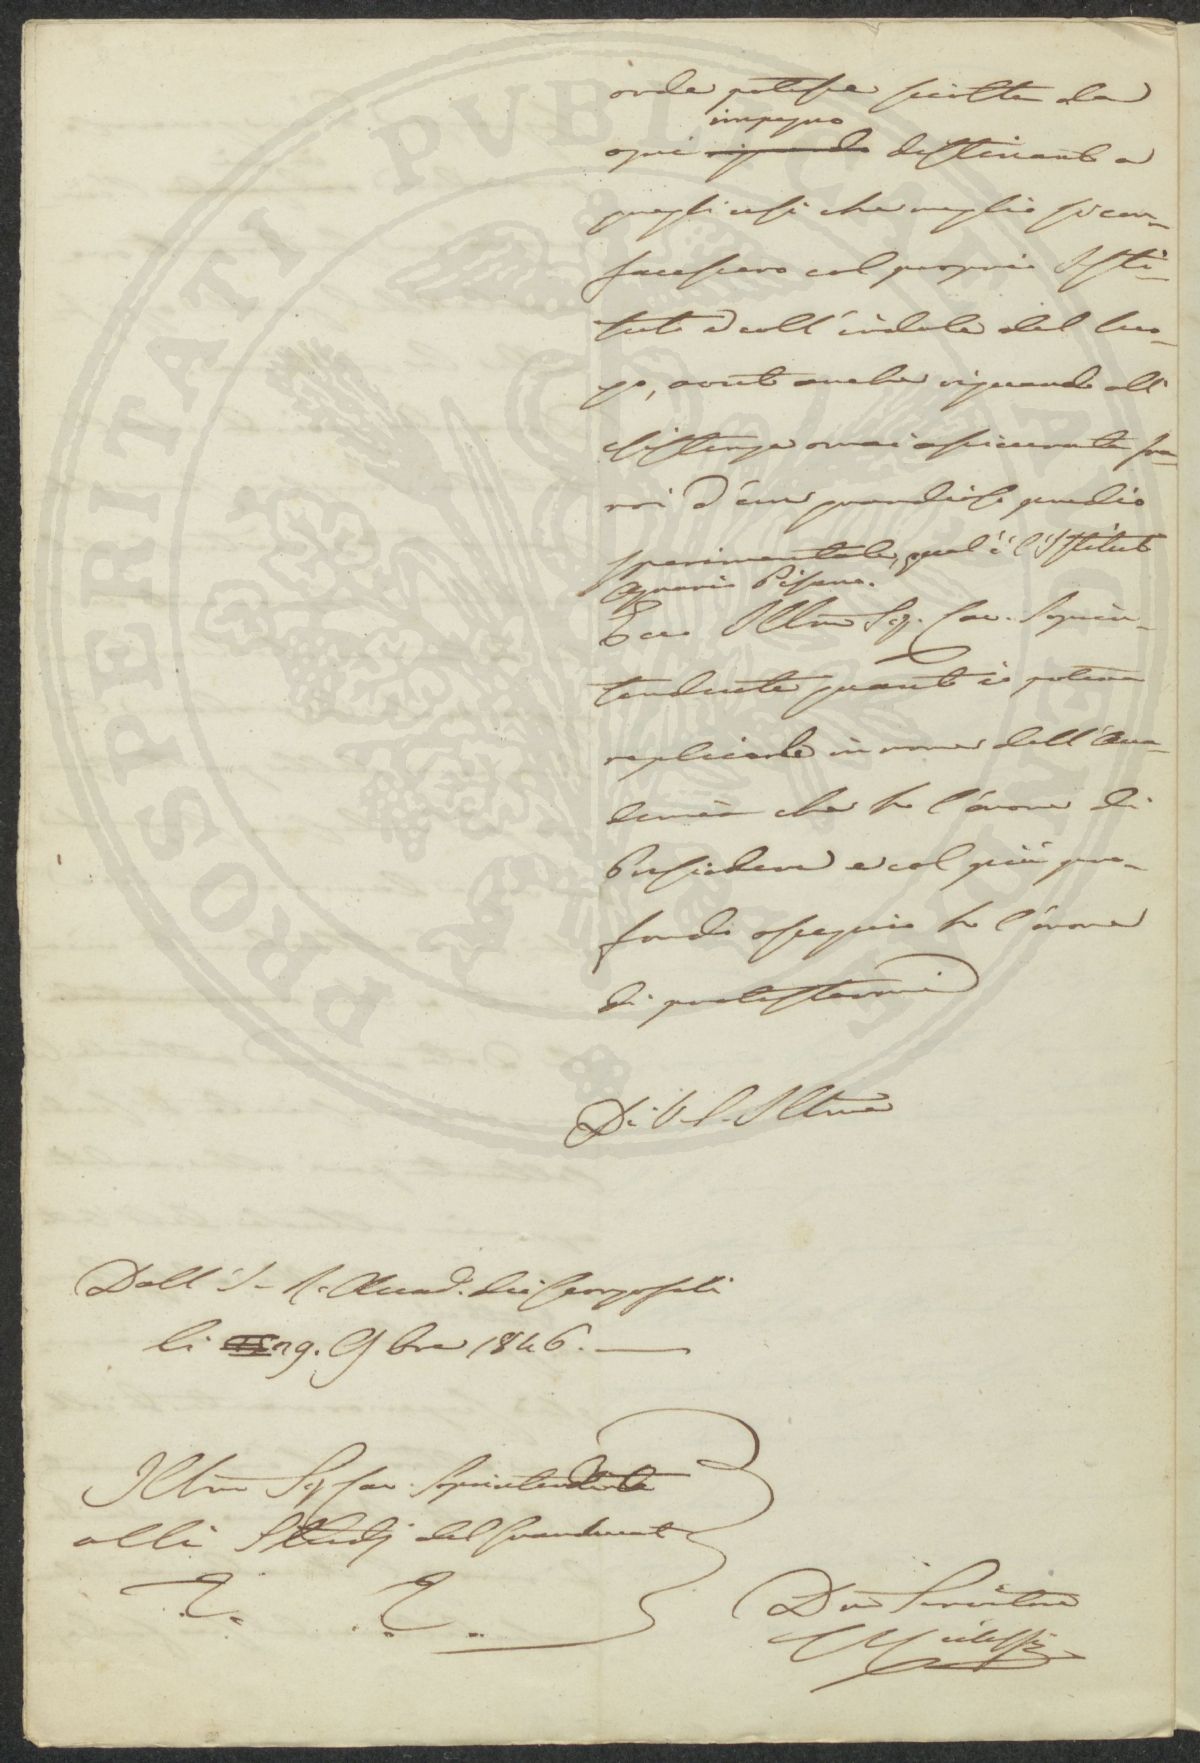 onde potesse sciolta da
impegno
ogni riguardo destinarlo a
quegli usi che meglio si con-
facessero col proprio Isti-
tuto e coll'indole del luo-
go, avuto anche riguardo all'
esistenza omai assicurata fra
noi d'un grandioso
sperimentale, qual'è l'Istituto
Agrario Pisano.
Ecco Illmo Sig. Cav. Soprin-
tendente quanto io poteva
replicarle in nome dell'Acca-
demia che ho l'onore di
Presiedere e col più pro-
fondo ossequio ho l'onore
di protestarmi
Di V. S. Illma
Dall'I. R. Accad. dei Georgofili
li 29. 9bre 1846.
Illmo Sig Cav. Soprintendente
alli Studj del Granducato
Dev Servitore
PROSPERITATI PUBLICAE AUGENDAE